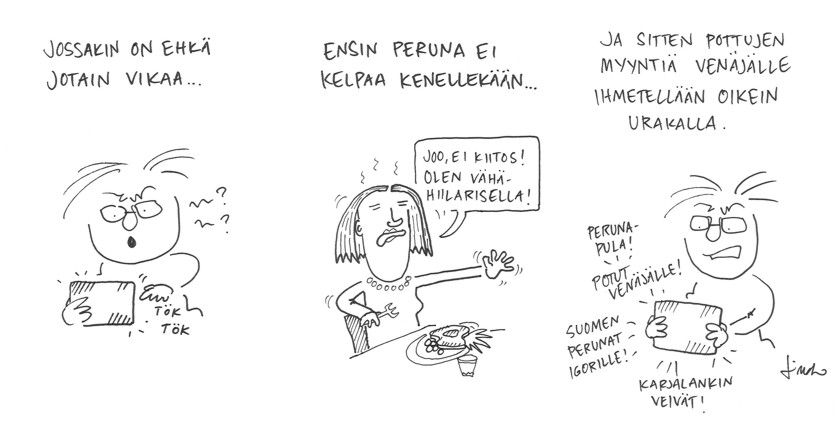 JOSSAKIN ON EHKÄ
JOTAIN VIKAA...
TÖK
TÖK
ENSIN PERUNA EI
KELPAA KENELLEKÄÄN...
JOO, EI KIITOS!
OLEN VÄHÄ-
HIILARISELLA!
JA SITTEN POTTUJEN
MYYNTIÄ VENÄJÄLLE
IHMETELLÄÄN OIKEIN
URAKALLA.
PERUNA-
PULA!
POTUT
VENÄJÄLLE!
SUOMEN
PERUNAT
IGORILLE!
KARJALANKIN
VEIVÄT!